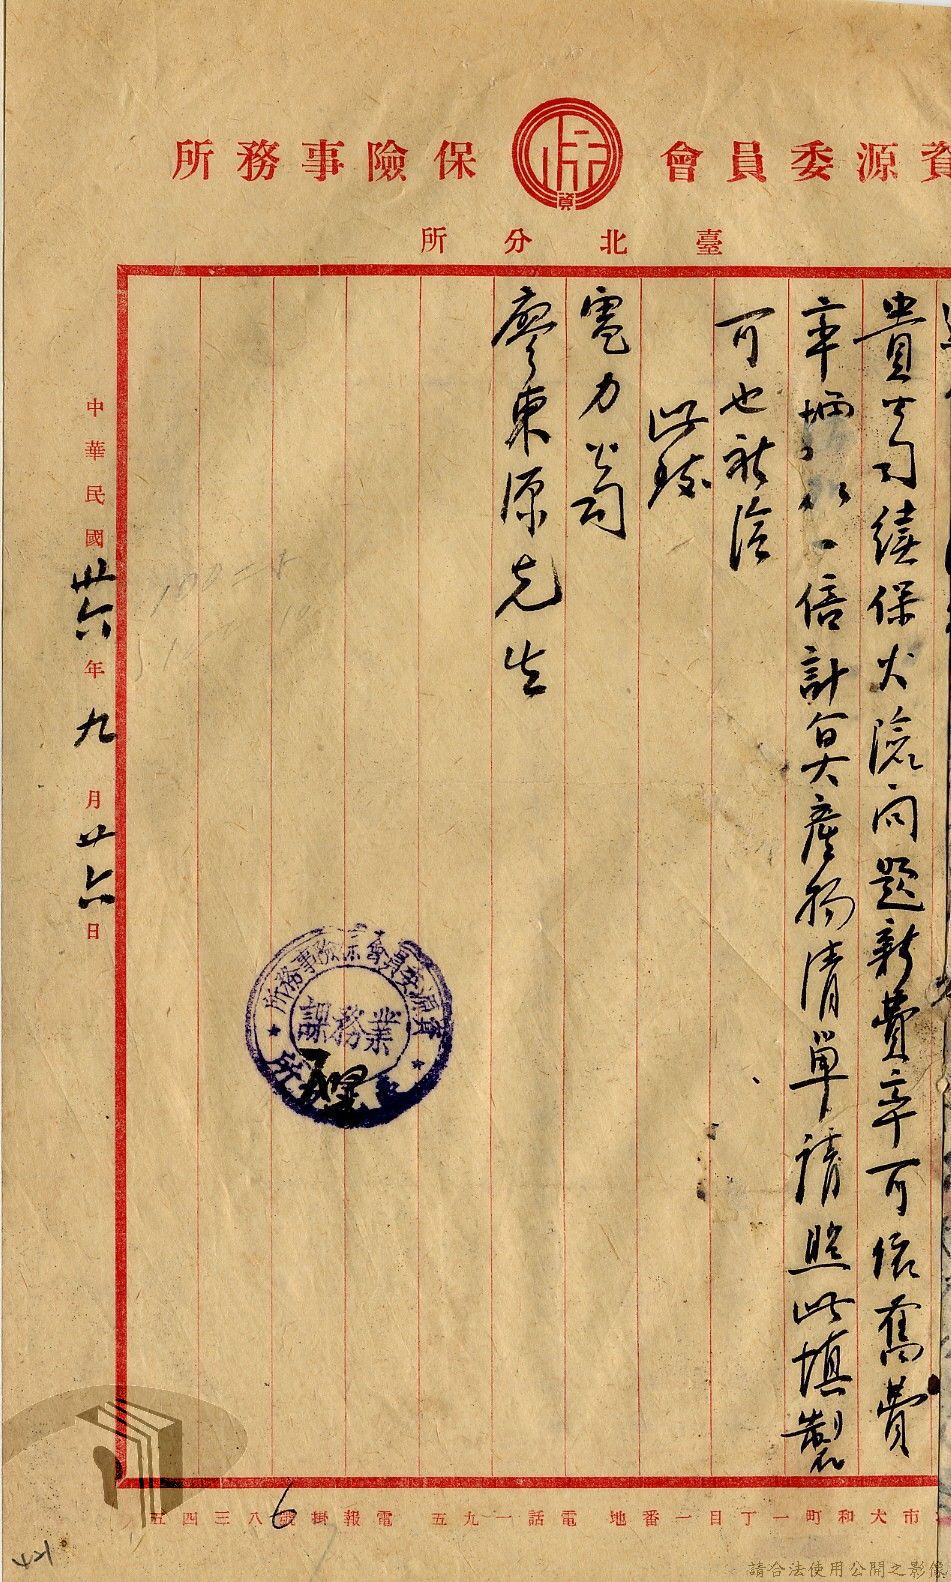 資源委員會
保險事務所
資
臺北分所
貴公司續保火險問題新費率可依舊費
率增加一倍計算產物清單請照此填製
可也祈洽
此致
電力公司
廖東原先生
資源委員會保險事務所
業務課
中華民國卅六年九月廿六日
市大和町一丁目一番地 電話一九五 電報掛號八三四五
6
請合法使用公開之影像